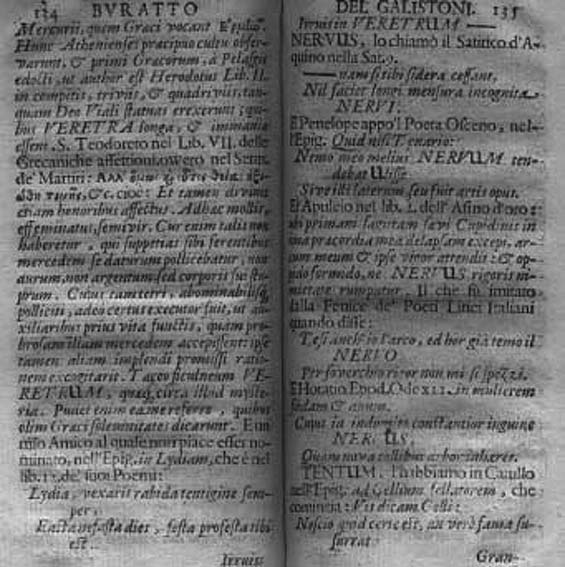 134 BVRATTO
Mercurii, quem Græci vocant
Hunc Athenienses præcipuo cultu obser-
varunt, & primi Græcorum, à Pelasgis
edocti, ut author est Herodotus Lib. II.
in compitis, triviis, & quadriviis, tan-
quam Deo Viali statuas erexerunt; qui-
bus VERETRA longa, & immania
essent. S. Teodoreto nel Lib. VII. delle
Grecaniche affettioni, overo nel Serm.
de' Martiri:
&c. cioè: Et tamen divinis
etiam honoribus affectus. Adhæc mollis,
effeminatus, semivir. Cur enim talis non
haberetur, qui suppetias sibi ferentibus
mercedem se daturum pollicebatur, non
aurum, non argentum, sed corporis sui stu-
prum. Cujus tam tetri, abominabilisq;
polliciti, adeo certus executor fuit, ut au-
xiliaribus prius vita functis, quam pro-
brosam illam mercedem accepissent: ipse
tamen aliam implendi promissi ratio-
nem excogitarit. Taceo ficulneum VE-
RETRUM, quæq; circa illud myste-
ria. Pudet enim ea me referre, quibus
olim Græci solemnitates dicarunt. E un
mio Amico al quale non piace esser no-
minato, nell'Epig. in Lydiam, che è nel
lib. 12. de' suoi Poemi:
Lydia, vexaris rabida tentigine sem-
per,
Fasta nefasta dies, festa profesta tibi
est.
Irruis-
DEL GALISTONI. 135
Irruis in VERETRUM
NERVUS, lo chiamò il Satirico d'A-
quino nella Sat. 9.
nam si tibi sidera cessant,
Nil faciet longi mensura incognita
NERVI:
E Penelope appo'l Poeta Osceno, nel-
l'Epig. Quid nisi Tenario:
Nemo meo melius NERVUM ten-
debat Ulisse.
Sive illi laterum seu fuit artis opus.
E Apuleio nel lib. 2. dell'Asino d'oro:
ubi primam sagittam sævi Cupidinis in
ima præcordia mea delapsam excepi, ar-
cum meum & ipse vigor attendit: & op-
pido formido, ne NERVUS rigoris ni-
mietate rumpatur. Il che fu imitato
dalla Fenice de' Poeti Lirici Italiani
quando disse:
Tesi anch'io l'arco, ed hor già temo il
NERVO
Per soverchio rigor non mi si spezzi.
E Horatio Epod. Ode XII. in mulierem
fœdam & anum.
Cujus in indomito constantior inguine
NERVUS,
Quam nova collibus arbor inhæret.
TENTUM, l'habbiamo in Catullo
nell'Epig. ad Gellium fellatorem, che
comincia: Quid dicam Gelli:
Nescio quid certe est, an verò fama su-
surrat
Gran-